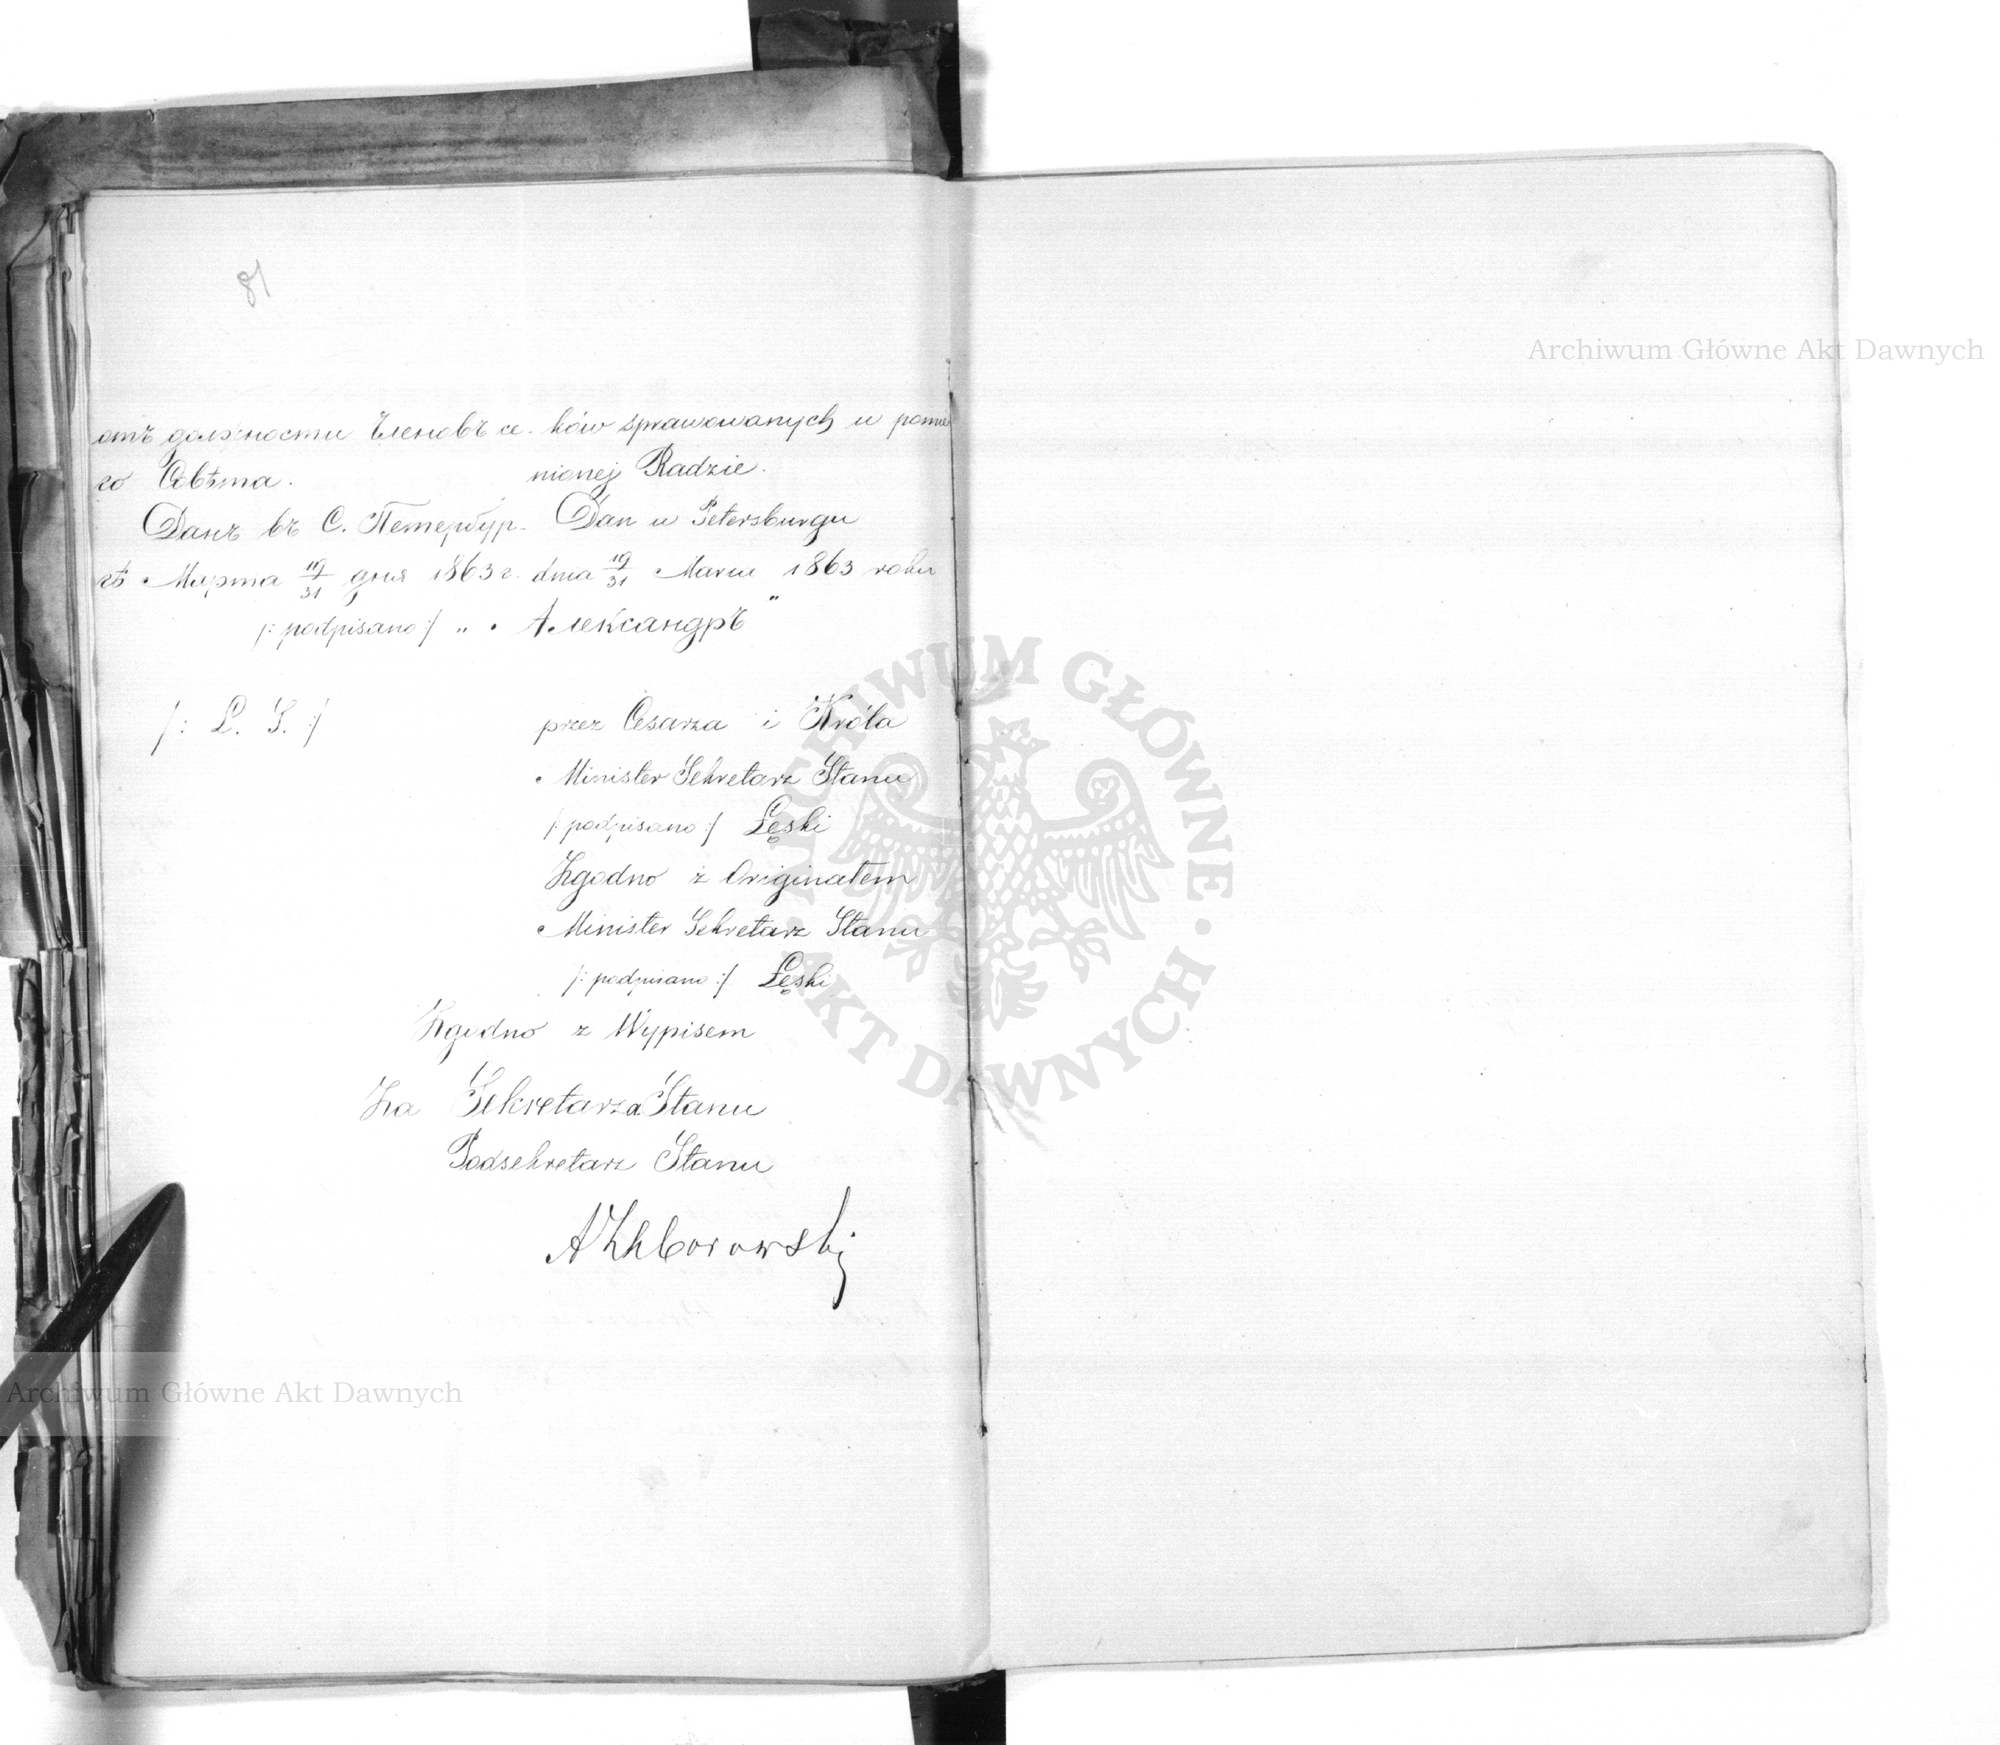 81
отъ должности Членовъ се-
го Совѣта.
Данъ въ С. Петербур-
гѣ Марта 19/31 дня 1863 г.
ków sprawowanych w pomie
nionej Radzie.
Dan w Petersburgu
dnia 19/31 Marca 1863 roku
/: podpisano :/ „ Александръ "
/: L. S. :/
przez Cesarza i Króla
Minister Sekretarz Stanu
/: podpisano :/ Łęski
Zgodno z Originałem
Minister Sekretarz Stanu
/: podpisano :/ Łęski
Zgodno z Wypisem
Za Sekretarza Stanu
Podsekretarz Stanu
Archiwum Główne Akt Dawnych
ARCHIWUM GŁÓWNE AKT DAWNYCH
Archiwum Główne Akt Dawnych